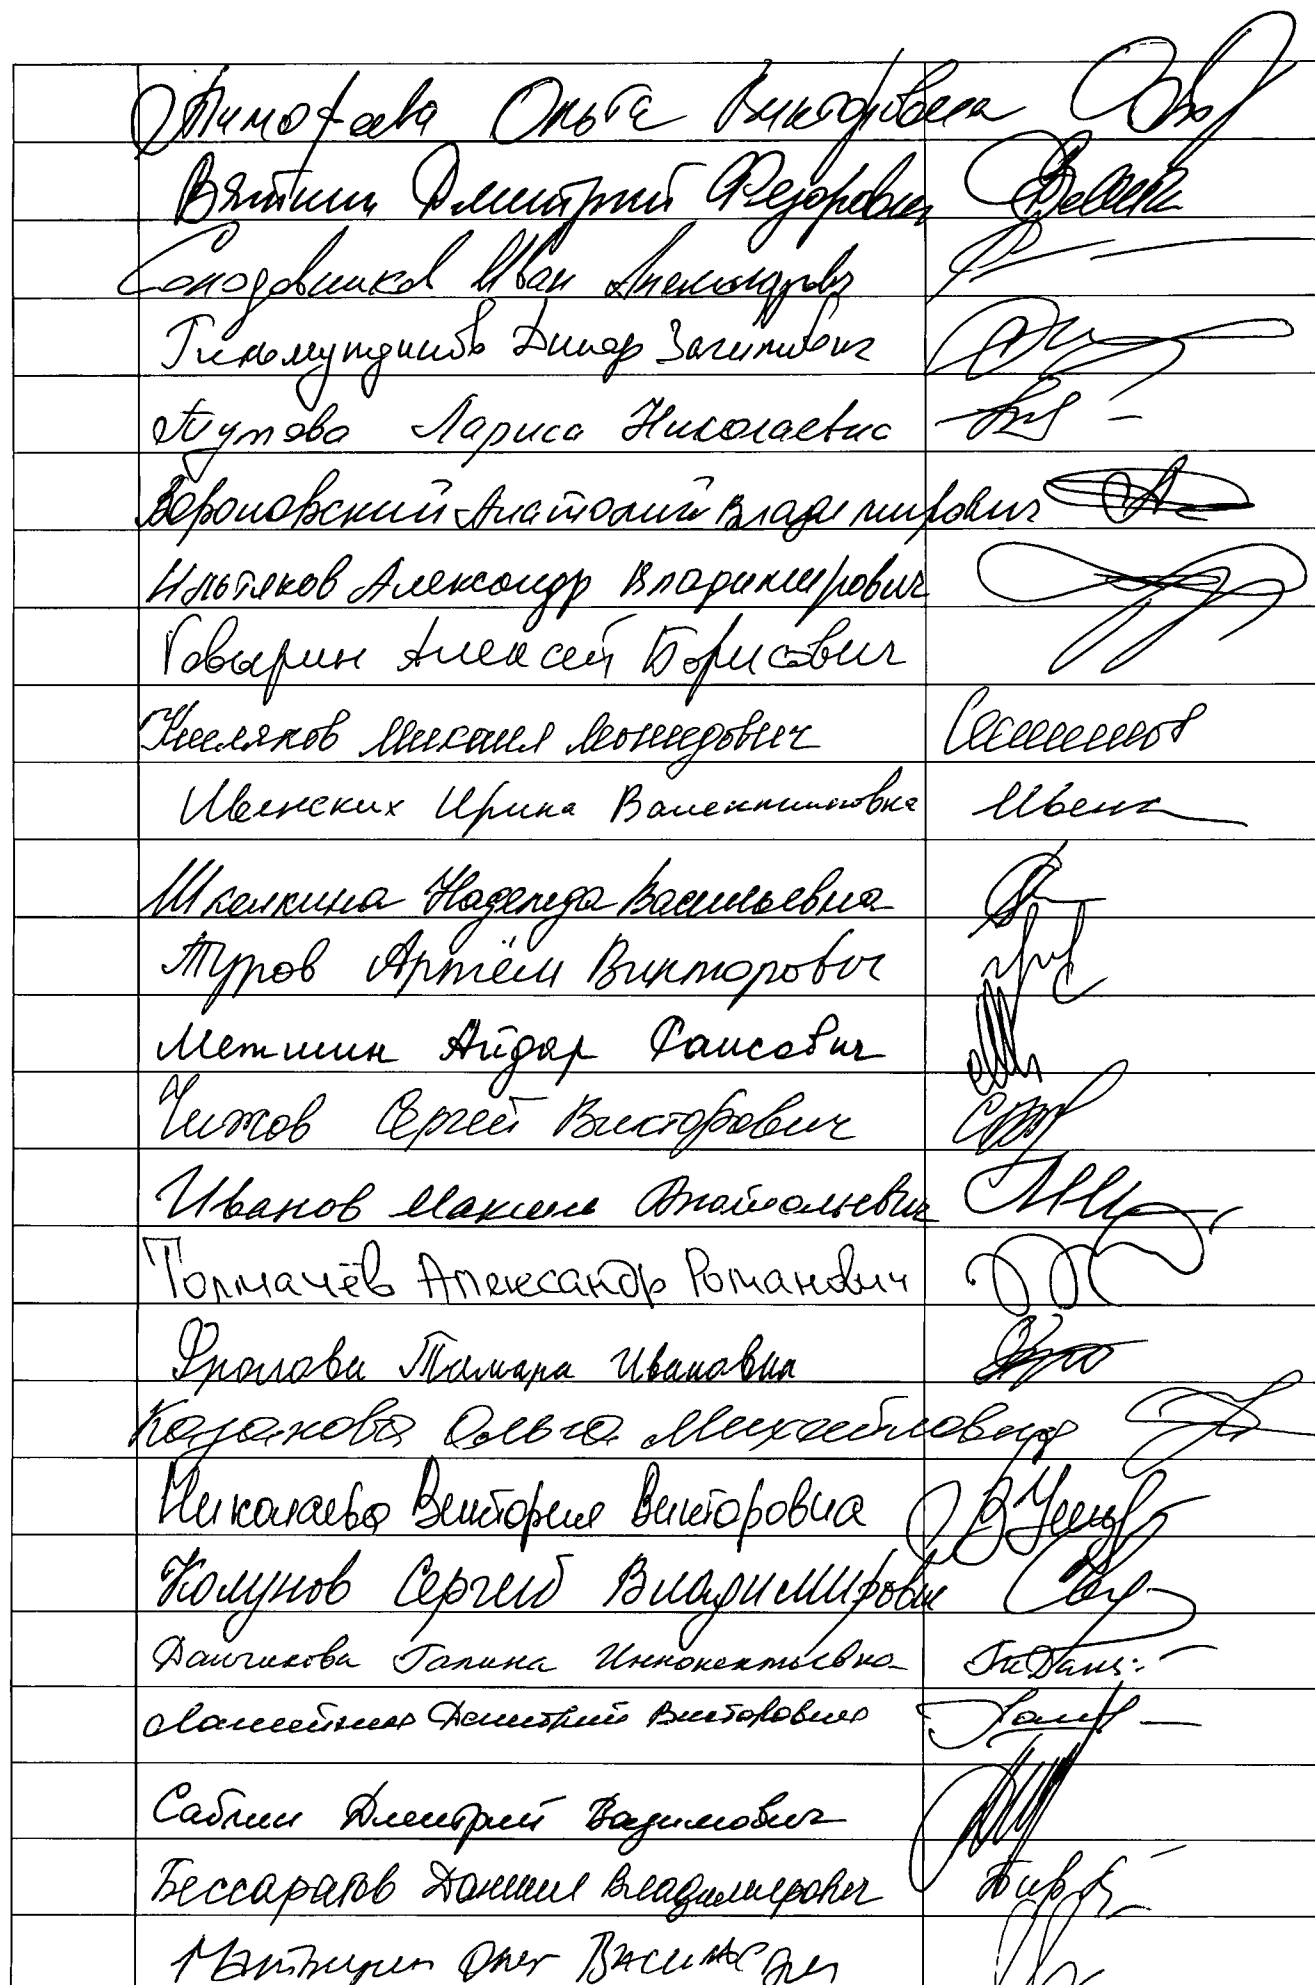 Тимофеева Ольга Викторовна
Вяткин Дмитрий Федорович
Солодовников Иван Александрович
Гильмутдинов Динар Загитович
Тутова Лариса Николаевна
Вороновский Анатолий Владимирович
Ильтяков Александр Владимирович
Говырин Алексей Борисович
Кизляков Михаил Леонидович
Ивенских Ирина Валентиновна
Школкина Надежда Васильевна
Туров Артём Викторович
Метшин Айдар Раисович
Чижов Сергей Викторович
Иванов Максим Анатольевич
Толмачёв Александр Романович
Фролова Тамара Ивановна
Казакова Ольга Михайловна
Николаева Виктория Викторовна
Колунов Сергей Владимирович
Данчикова Галина Иннокентьевна
Ламейкин Дмитрий Викторович
Саблин Дмитрий Вадимович
Бессарабов Даниил Владимирович
Матыцин Олег Васильевич